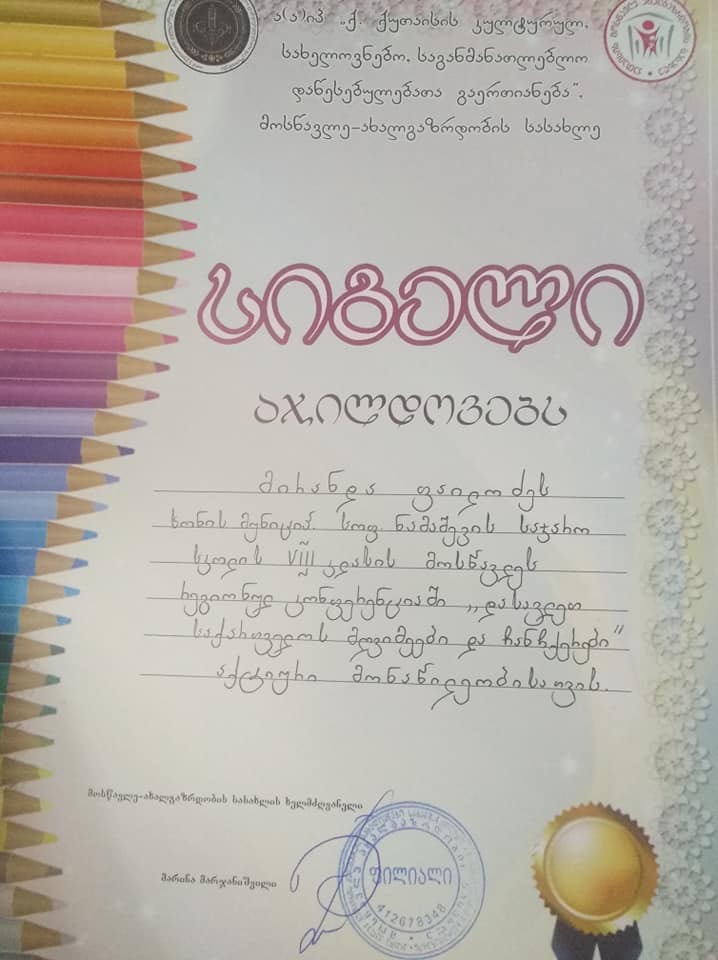 ა(ა)იპ „ქ. ქუთაისის კულტურულ,
სახელოვნებო, საგანმანათლებლო
დაწესებულებათა გაერთიანება”,
მოსწავლე-ახალგაზრდობის სასახლე
სიგელი
აჯილდოვებს
მირანდა ფაილოძეს
ხონის მუნიციპ. სოფ. ნამაშევის საჯარო
სკოლის VIII კლასის მოსწავლეს
რეგიონულ კონფერენციაში ,,დასავლეთ
საქართველოს მღვიმეები და ჩანჩქერები”
აქტიური მონაწილეობისათვის.
მოსწავლე-ახალგაზრდობის სასახლის ხელმძღვანელი
მარინა მარჯანიშვილი
ფილიალი
412678348